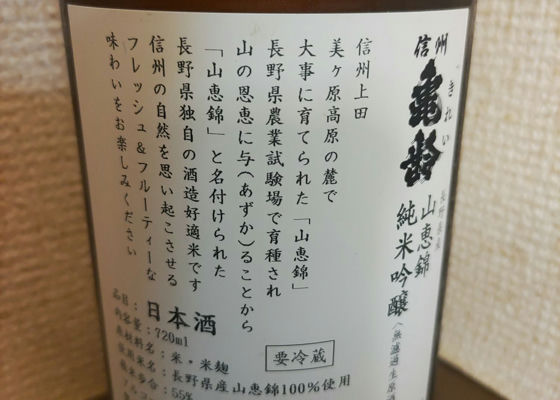 信州
亀齢
きれい
長野県産
山恵錦
純米吟醸
〈無濾過生原酒
信州上田
美ヶ原高原の麓で
大事に育てられた「山恵錦」
長野県農業試験場で育種され
山の恩恵に与(あずか)ることから
「山恵錦」と名付けられた
長野県独自の酒造好適米です
信州の自然を思い起こさせる
フレッシュ&フルーティーな
味わいをお楽しみください
要冷蔵
品目:日本酒
内容量:720ml
原材料名:米・米麹
使用米名:長野県産山恵錦100%使用
精米歩合:55%
アルコ